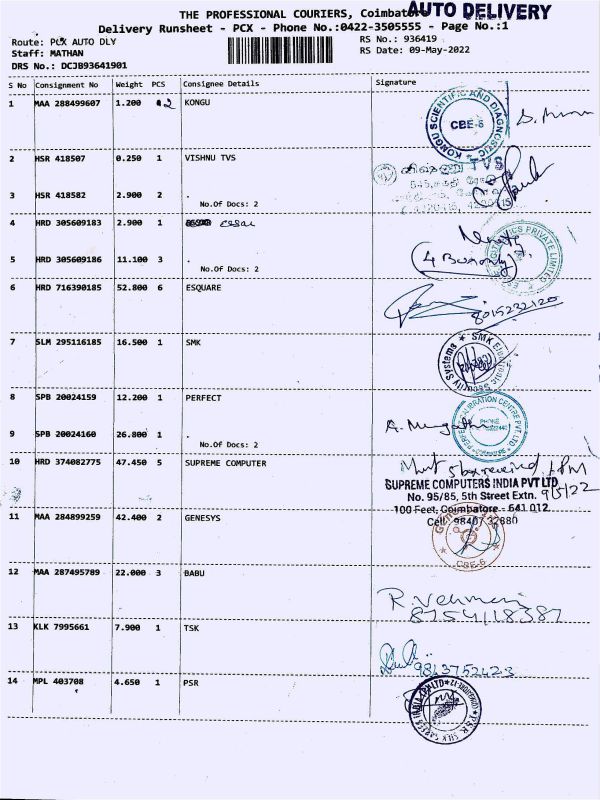 THE PROFESSIONAL COURIERS, Coimbatore
AUTO DELIVERY
Delivery Runsheet - PCX - Phone No.:0422-3505555 - Page No.:1
Route: PCX AUTO DLY
RS No.: 936419
Staff: MATHAN
RS Date: 09-May-2022
DRS No.: DCJB93641901
S No Consignment No Weight PCS Consignee Details Signature
1 MAA 288499607 1.200 2 KONGU
KONGU SCIENTIFIC AND DIAGNOSTIC
CBE-6
2 HSR 418507 0.250 1 VISHNU TVS
TVS
3 HSR 418582 2.900 2 .
No.Of Docs: 2
4 HRD 305609183 2.900 1
5 HRD 305609186 11.100 3 .
No.Of Docs: 2
(4 Box only)
PRIVATE LIMITED
6 HRD 716390185 52.800 6 ESQUARE
8015232120
7 SLM 295116185 16.500 1 SMK
SMK Electronic Security Systems
8 SPB 20024159 12.200 1 PERFECT
9 SPB 20024160 26.800 1 .
No.Of Docs: 2
PERFECT CALIBRATION CENTRE PVT LTD
PHONE
10 HRD 374082775 47.450 5 SUPREME COMPUTER
5 box received
SUPREME COMPUTERS INDIA PVT LTD
No. 95/85, 5th Street Extn.
9/5/22
100 Feet, Coimbatore - 641 012
Cell: 98407 32880
11 MAA 284899259 42.400 2 GENESYS
CBE-6
12 MAA 287495789 22.000 3 BABU
8754118387
13 KLK 7995661 7.900 1 TSK
14 MPL 403708 4.650 1 PSR